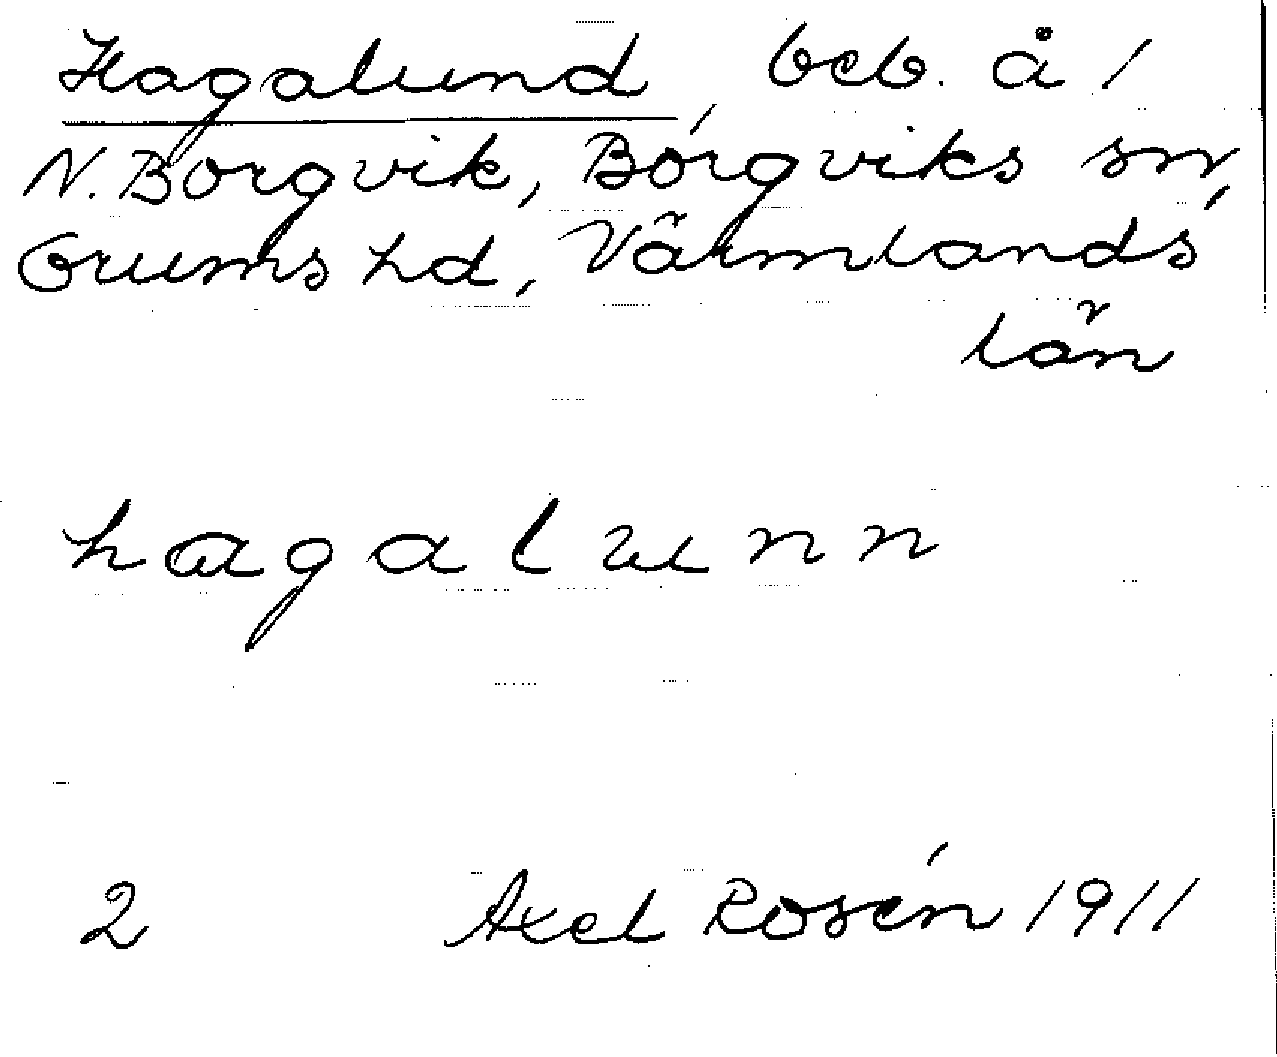 Hagalund, beb. å 1
N. Borgvik, Borgviks sn,
Grums hd, Värmlands
län
hagalunn
2 Axel Rosén 1911